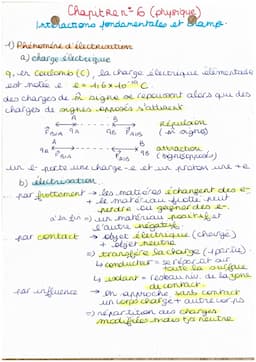 Chapitre n°6 (physique)
Interactions fondamentales et champ.
1) Phénomène d'électrisation
a) charge électrique
q, en coulomb (C), la charge électrique élémentaire
est notée e e = 1,6 × 10⁻¹⁹ C
des charges de m̂ signe se repoussent alors que des
charges de signes opposés s'attirent
A B répulsion
F B/A qA qB F A/B (m̂ signes)
A B attraction
qA F B/A F A/B qB (signes opposés)
un e⁻ porte une charge -e et un proton une +e
b) électrisation
par frottement → les matières échangent des e⁻
+ le matériau frotté peut
perdre ou gagner des e⁻
à la fin ⇒ un matériau positif et
l'autre négatif
par contact → objet électrique (chargé)
+ objet neutre
⇒ transfère la charge (+ partie).
↳ conducteur = se répartit sur
toute la surface
↳ isolant = reste au niv. de la zone
du contact.
par influence → on approche sans contact
un corps chargé + autre corps
⇒ répartition des charges
modifiées mais tjs neutre